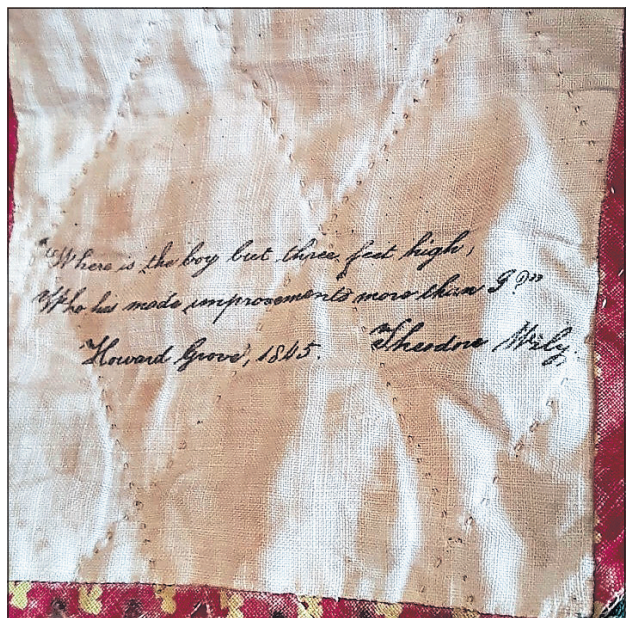 "Where is the boy but three feet high,
Who has made improvements more than I?"
Howard Grove, 1845. Theodore Wily.